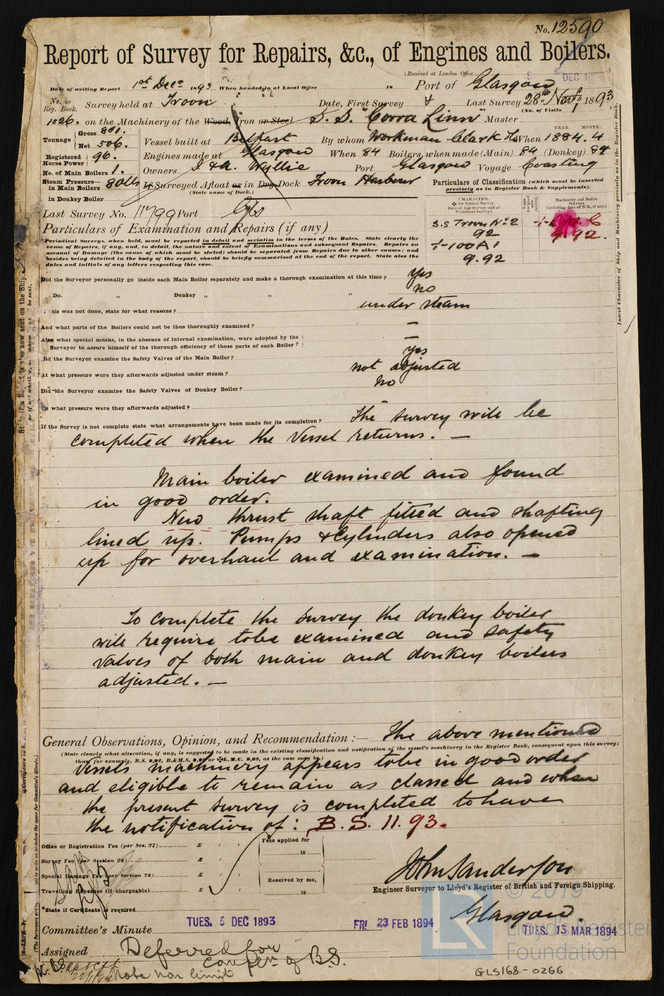 No. 12590
Report of Survey for Repairs, &c., of Engines and Boilers.
(Received at London Office
Date of writing Report 1st Decr 1893 When handed in at Local Office 18 Port of Glasgow
No. in Reg. Book. Survey held at Troon Date, First Survey & Last Survey 28th Novr, 1893
(No. of Visits
1026. on the Machinery of the Wood, Iron or Steel S.S. "Corra Linn" Master
Tonnage Gross 861. Net 506. Vessel built at Belfast By whom Workman Clark & Co When 1884. 4
YEAR. MONTH.
Registered Horse Power 96. Engines made at Glasgow When 84 Boilers, when made (Main) 84 (Donkey) 84
No. of Main Boilers 1. Owners J. & A. Wyllie Port Glasgow Voyage Coasting
Steam Pressure in Main Boilers 80 lbs If Surveyed Afloat or in Dry Dock Troon Harbour
(State name of Dock.)
in Donkey Boiler
Particulars of Classification (which must be inserted precisely as in Register Book & Supplements).
Last Survey No. 11799 Port Gls
Particulars of Examination and Repairs (if any)
B.S Troon No 2
92
+100A1
9.92
9.92.
Periodical Surveys, when held, must be reported in detail and seriatim in the terms of the Rules. State clearly the
dates and initials of any letters respecting this case.
Did the Surveyor personally go inside each Main Boiler separately and make a thorough examination at this time? yes
Do. " Donkey " " " no
If this was not done, state for what reasons? under steam
And what parts of the Boilers could not be thus thoroughly examined? —
Also what special means, in the absence of internal examination, were adopted by the
Surveyor to assure himself of the thorough efficiency of those parts of each Boiler? —
Did the Surveyor examine the Safety Valves of the Main Boiler? yes
At what pressure were they afterwards adjusted under steam? not adjusted
Did the Surveyor examine the Safety Valves of Donkey Boiler? no
At what pressure were they afterwards adjusted?
If the Survey is not complete state what arrangements have been made for its completion? The survey will be
completed when the Vessel returns. —
Main boiler examined and found
in good order.
New thrust shaft fitted and shafting
lined up. Pumps & Cylinders also opened
up for overhaul and examination. —
To complete the survey the donkey boiler
will require to be examined and safety
valves of both main and donkey boilers
adjusted. —
General Observations, Opinion, and Recommendation:— The above mentioned
(State clearly what alteration, if any, is suggested to be made in the existing classification and notification of the vessel's machinery in the Register Book, consequent upon this survey;
Vessels machinery appears to be in good order
and eligible to remain as classed and when
the present survey is completed to have
the notification of: B.S. 11.93.
Office or Registration Fee (per Sec. 27) £
Survey Fee (per Section 28) £
Special Damage Fee (per Section 28) £
Travelling Expenses (if chargeable) £
Fees applied for
18
Received by me,
18
*State if Certificate is required
John Sanderson
Engineer Surveyor to Lloyd's Register of British and Foreign Shipping.
Glasgow.
Committee's Minute TUES. 5 DEC 1893 FRI 23 FEB 1894 TUES. 13 MAR 1894
Assigned Deferred for
Comp'n of B.S.
Foundation
GLS168-0266